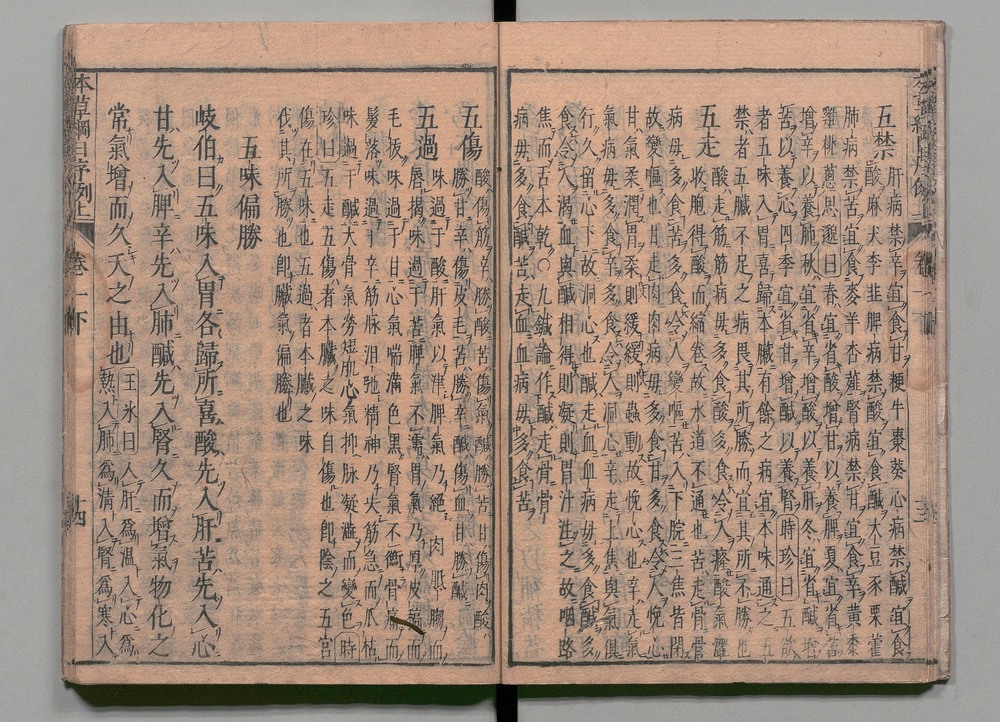 五禁 肝病禁辛宜食甘粳牛棗葵心病禁鹹宜食
酸麻犬李韭脾病禁酸宜食鹹大豆豕栗藿
肺病禁苦宜食麥羊杏薤腎病禁甘宜食辛黃黍
雞桃蔥思邈曰春宜省酸增甘以養脾夏宜省苦
增辛以養肺秋宜省辛增酸以養肝冬宜省鹹增
苦以養心四季宜省甘增鹹以養腎時珍曰五欲
者五味入胃喜歸本臟有餘之病宜本味通之五
禁者五臟不足之病畏其所勝而宜其所不勝也
五走 酸走筋筋病毋多食酸多食令人癃酸氣濇
收胞得酸而縮卷故水道不通也苦走骨骨
病毋多食苦多食令人變嘔苦入下脘三焦皆閉
故變嘔也甘走肉肉病毋多食甘多食令人悗心
甘氣柔潤胃柔則緩緩則蟲動故悗心也辛走氣
氣病毋多食辛多食令人洞心辛走上焦與氣俱
行久留心下故洞心也鹹走血血病毋多食鹹多
食令人渴血與鹹相得則凝凝則胃汁注之故咽路
焦而舌本乾○九鍼論作鹹走骨骨
病毋多食鹹苦走血血病毋多食苦
五傷 酸傷筋辛勝酸苦傷氣鹹勝苦甘傷肉酸
勝甘辛傷皮毛苦勝辛鹹傷血甘勝鹹
五過 味過于酸肝氣以津脾氣乃絕肉胝䐢而
唇揭味過于苦脾氣不濡胃氣乃厚皮槁而
毛拔味過于甘心氣喘滿色黑腎氣不衡骨痛而
髮落味過于辛筋脉沮弛精神乃失筋急而爪枯
味過于鹹大骨氣勞短肌心氣抑脉凝濇而變色時
珍曰五走五傷者本臟之味自傷也即陰之五宮
傷在五味也五過者本臟之味
伐其所勝也即臟氣偏勝也
五味偏勝
岐伯曰五味入胃各歸所喜酸先入肝苦先入心
甘先入脾辛先入肺鹹先入腎久而增氣物化之
常氣增而久夭之由也 王氷曰入肝爲温入心爲
熱入肺爲清入腎爲寒入
本草綱目序例上 卷一下 十四